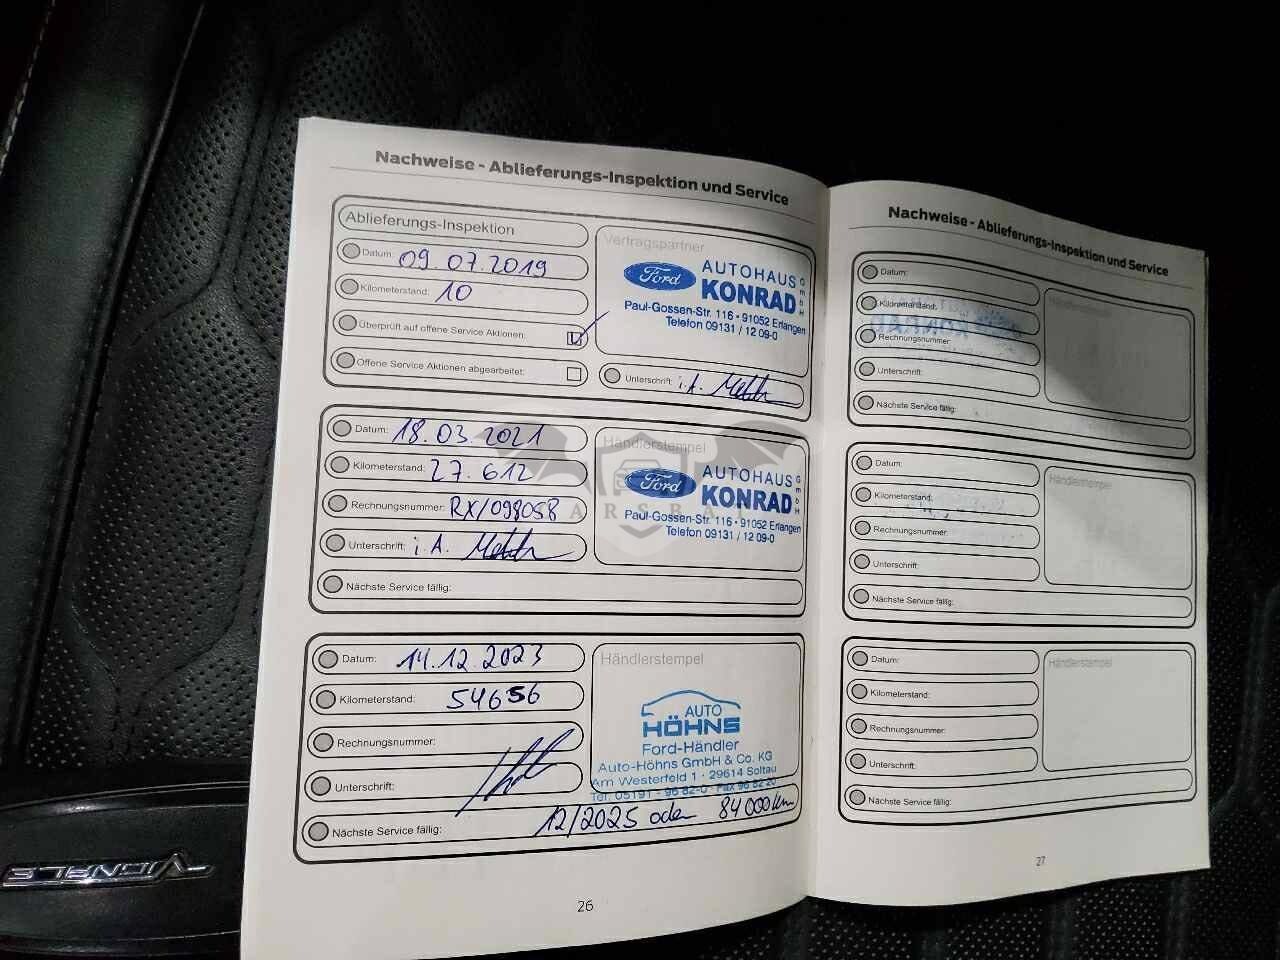 Nachweise - Ablieferungs-Inspektion und Service
Ablieferungs-Inspektion
Datum: 09.07.2019
Kilometerstand: 10
Überprüft auf offene Service Aktionen:
Offene Service Aktionen abgearbeitet:
Vertragspartner
Ford AUTOHAUS KONRAD GMBH
Paul-Gossen-Str. 116 • 91052 Erlangen
Telefon 09131 / 12 09-0
Unterschrift: i. A.
Datum: 18.03.2021
Kilometerstand: 27.612
Rechnungsnummer: RX/098058
Unterschrift: i. A.
Nächste Service fällig:
Händlerstempel
Ford AUTOHAUS KONRAD GMBH
Paul-Gossen-Str. 116 • 91052 Erlangen
Telefon 09131 / 12 09-0
Datum: 14.12.2023
Kilometerstand: 54656
Rechnungsnummer:
Unterschrift:
Nächste Service fällig: 12/2025 oder 84000km
Händlerstempel
AUTO
HÖHNS
Ford-Händler
Auto-Höhns GmbH & Co. KG
Am Westerfeld 1 · 29614 Soltau
Tel. 05191 - 96 82-0 · Fax 96 82 20
26
Nachweise - Ablieferungs-Inspektion und Service
Datum:
Kilometerstand:
Rechnungsnummer:
Unterschrift:
Nächste Service fällig:
Händlerstempel
Datum:
Kilometerstand:
Rechnungsnummer:
Unterschrift:
Nächste Service fällig:
Händlerstempel
Datum:
Kilometerstand:
Rechnungsnummer:
Unterschrift:
Nächste Service fällig:
Händlerstempel
27
VIGNALE